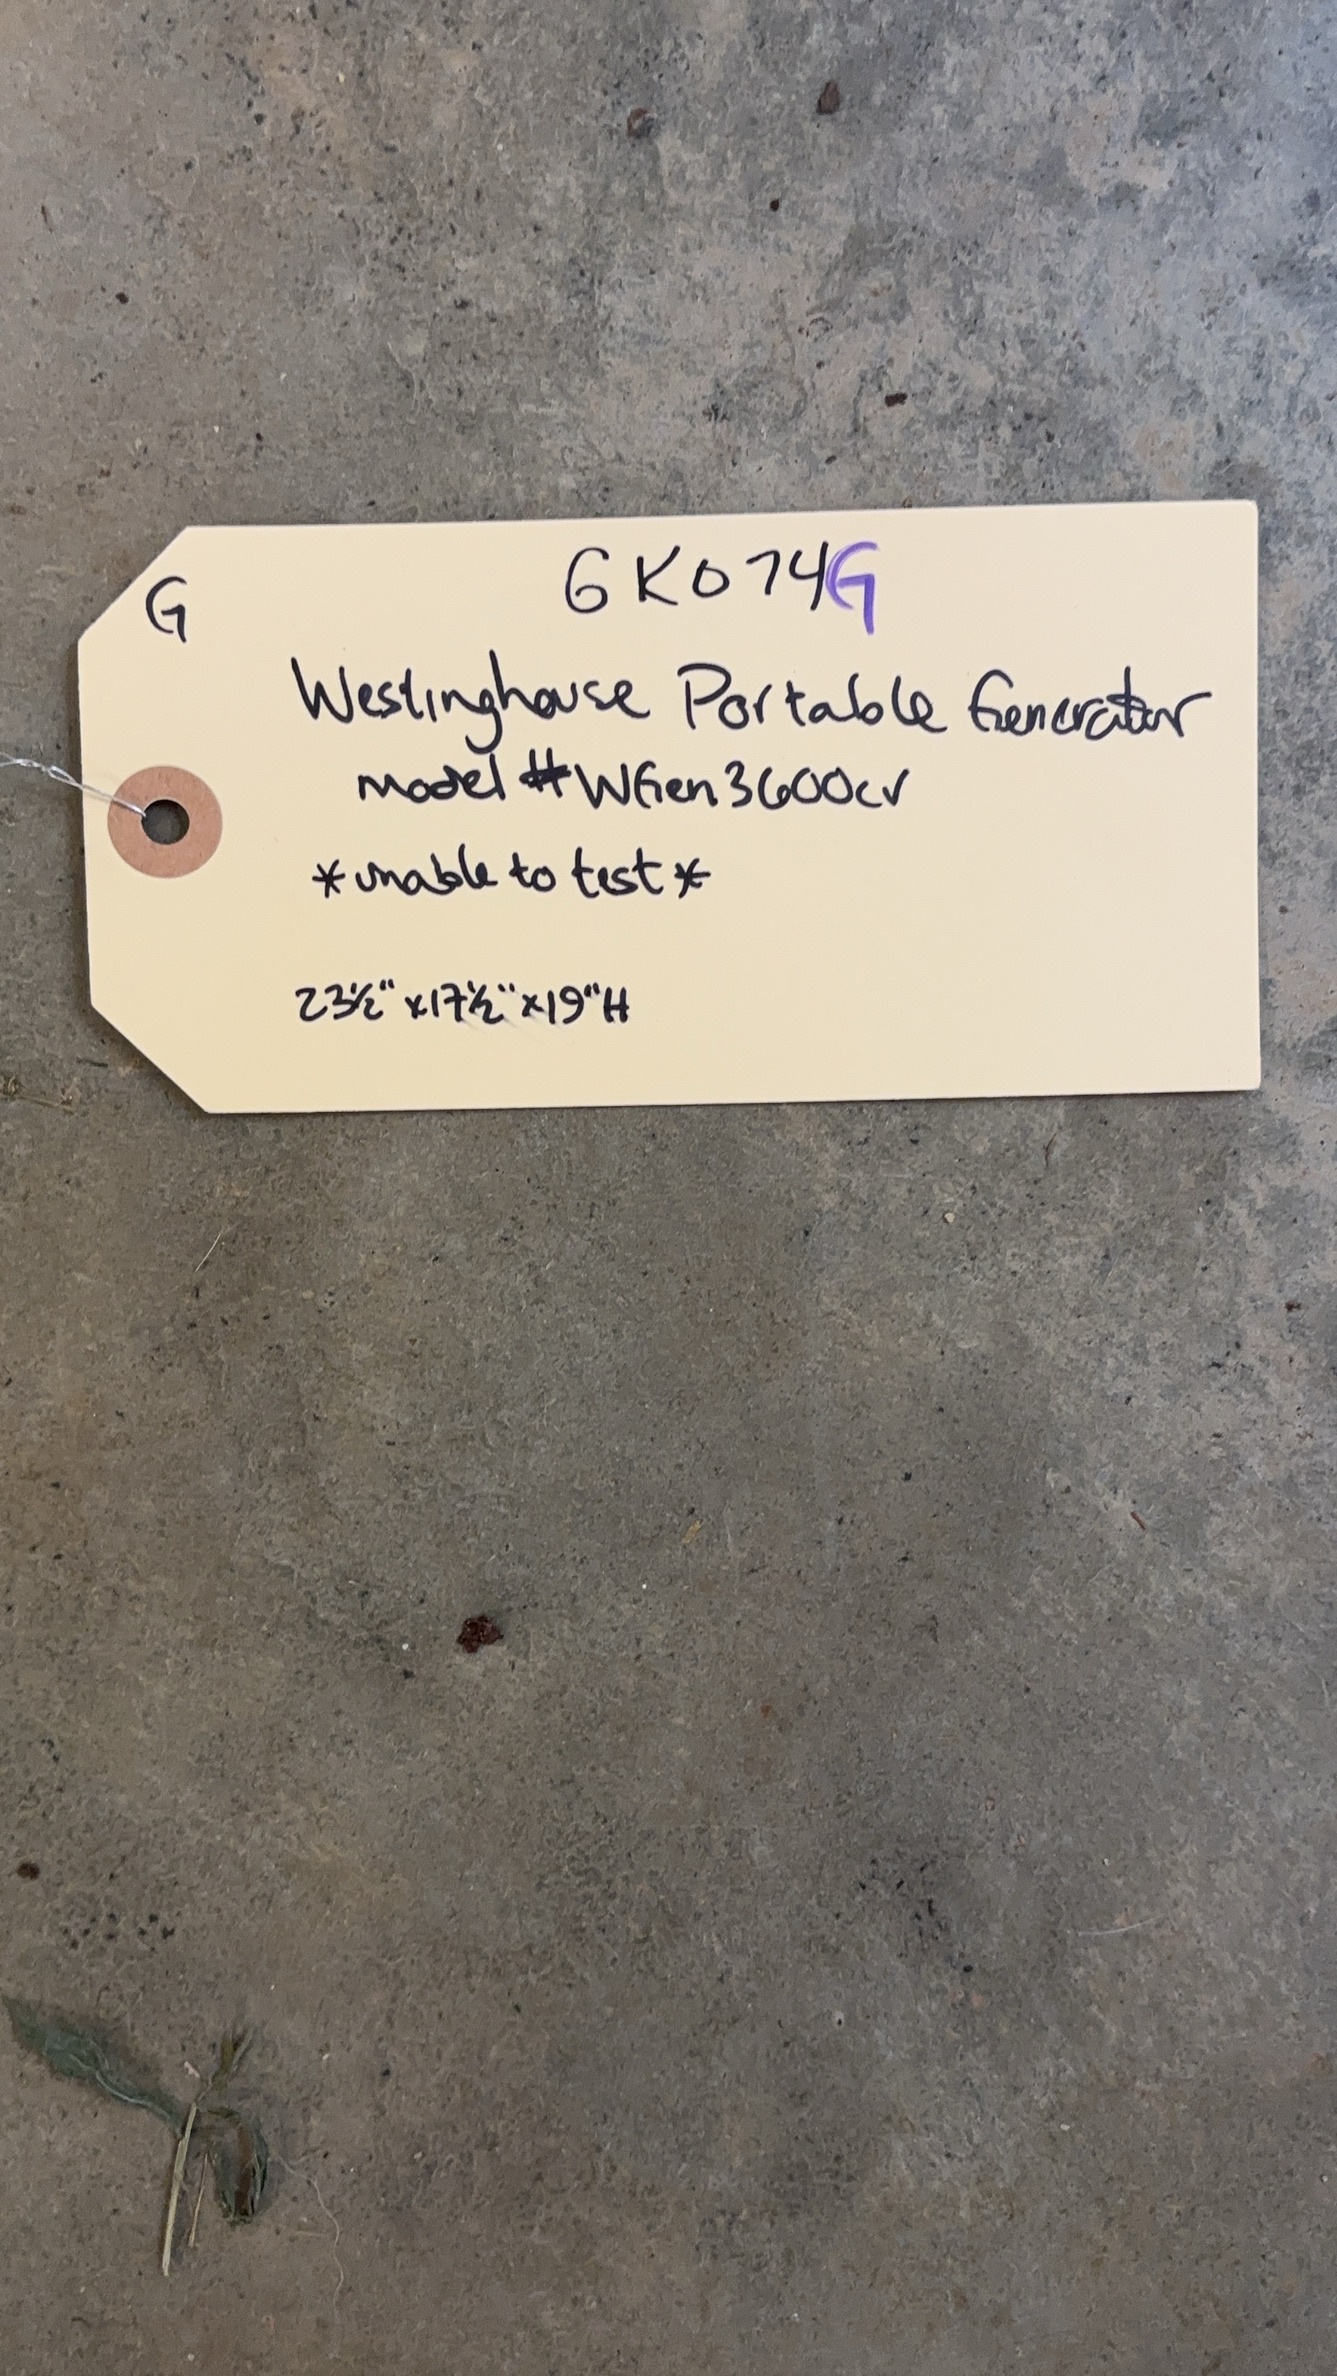 G
GK074G
Westinghouse Portable Generator
model #WGen3600cv
*unable to test*
23½" x17½" x19"H